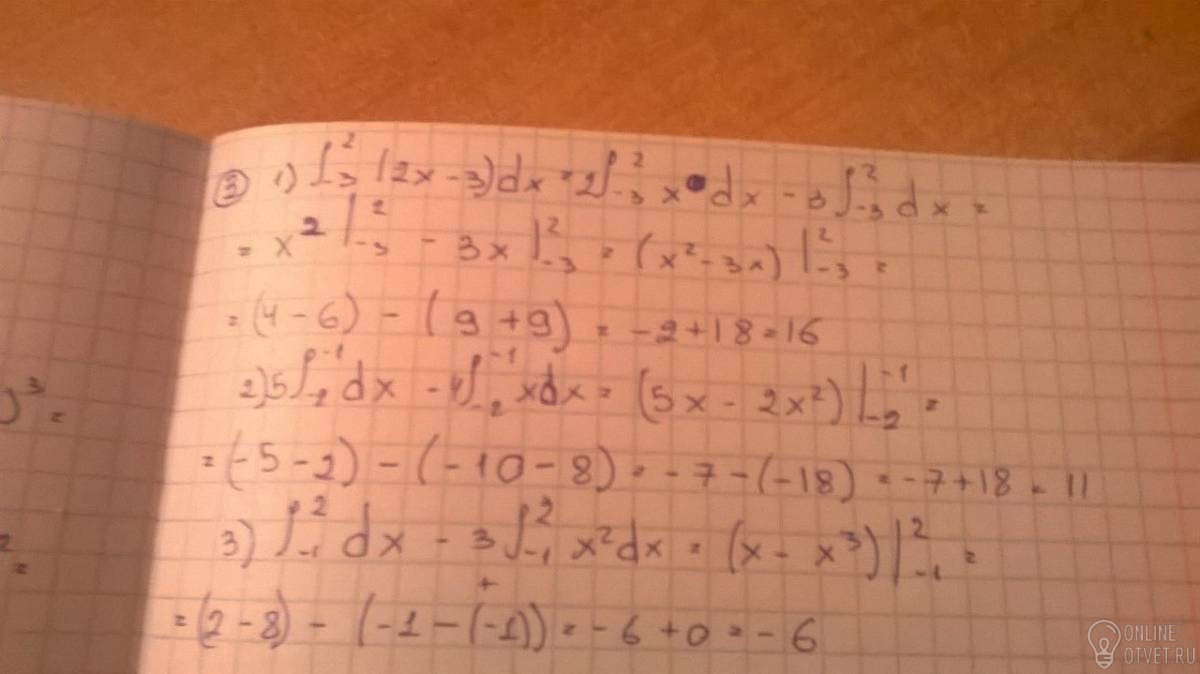 ③ 1) ∫₋₃² (2x-3)dx = 2∫₋₃² x dx - 3∫₋₃² dx =
= x² |₋₃² - 3x |₋₃² = (x²-3x) |₋₃² =
= (4-6) - (9+9) = -2+18=16
)³=
2) 5∫₋₂⁻¹ dx - 4∫₋₂⁻¹ xdx = (5x - 2x²) |₋₂⁻¹ =
= (-5-2) - (-10-8) = -7-(-18) = -7+18 = 11
3) ∫₋₁² dx - 3∫₋₁² x²dx = (x - x³) |₋₁² =
2 =
+
= (2-8) - (-1-(-1)) = -6+0 = -6
ONLINE
OTVET.RU